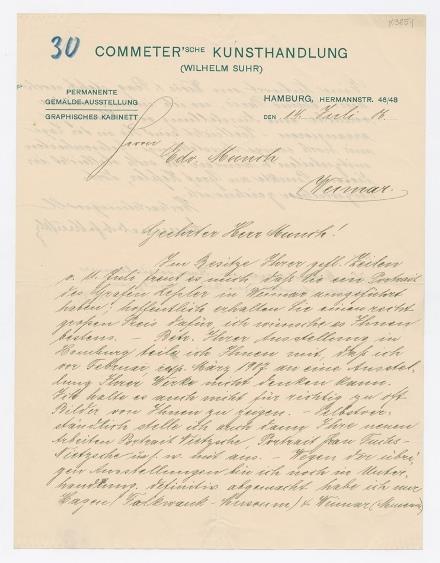 K3654
30
COMMETER'SCHE KUNSTHANDLUNG
(WILHELM SUHR)
PERMANENTE
GEMÄLDE-AUSSTELLUNG
GRAPHISCHES KABINETT
HAMBURG, HERMANNSTR. 46/48
DEN 14. Juli 06.
Herrn
Edv. Munch
Weimar.
Geehrter Herr Munch!
Im Besitze Ihrer gefl. Zeilen
v. 11. Juli freut es mich, daß Sie ein Portrait
des Grafen Keßler in Weimar ausgeführt
haben; hoffentlich erhalten Sie einen recht
großen Preis dafür, ich wünsche es Ihnen
bestens. – Betr. Ihrer Ausstellung in
Hamburg teile ich Ihnen mit, daß ich
vor Februar, esp. März 1907 an eine Ausstel-
lung Ihrer Werke nicht denken kann.
Ich halte es auch nicht für richtig zu oft
Bilder von Ihnen zu zeigen. – Selbstver-
ständlich stelle ich auch dann Ihre neuen
Arbeiten Portrait Nietzsche, Portrait Frau Fuchs-
Nietzsche u.s.w. mit aus. – Wegen der übri-
gen Ausstellungen bin ich noch in Unter-
handlung, definitiv abgemacht habe ich mit
Hagen (Falkwank-Museum) & Weimar (Museum)